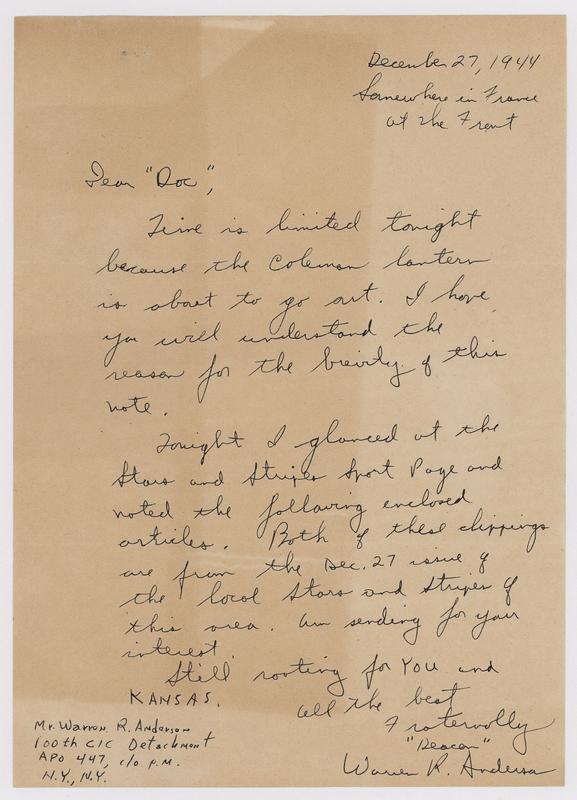 December 27, 1944
Somewhere in France
at the Front
Dear "Doc",
Time is limited tonight
because the Coleman lantern
is about to go out. I hope
you will understand the
reason for the brevity of this
note.
Tonight I glanced at the
Stars and Stripes Sport Page and
noted the following enclosed
articles. Both of these clippings
are from the Dec. 27 issue of
the local Stars and Stripes of
this area. Am sending for your
interest.
Still rooting for YOU and
KANSAS.
All the best
Fraternally
"Deacon"
Warren R. Anderson
Mr. Warren R. Anderson
100th CIC Detachment
APO 447, c/o P.M.
N.Y., N.Y.